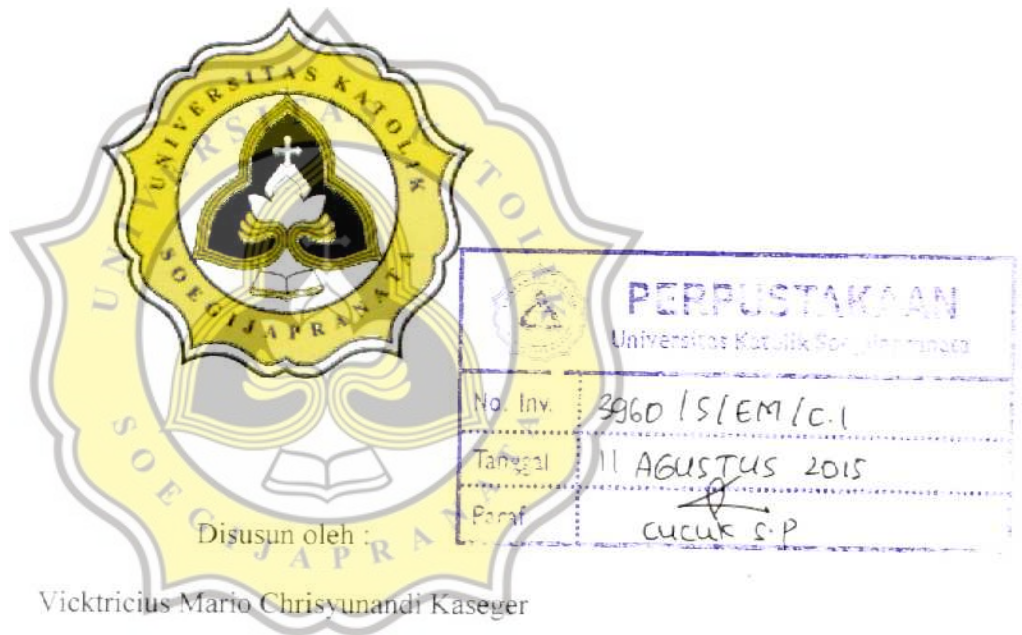 UNIVERSITAS KATOLIK
SOEGIJAPRANATA
UNIVERSITAS KATOLIK
SOEGIJAPRANATA
PERPUSTAKAAN
Universitas Katolik Soegijapranata
No. Inv. 3960 / S / EM / C.1
Tanggal 11 AGUSTUS 2015
Paraf CUCUK S.P
Disusun oleh :
Vicktricius Mario Chrisyunandi Kaseger